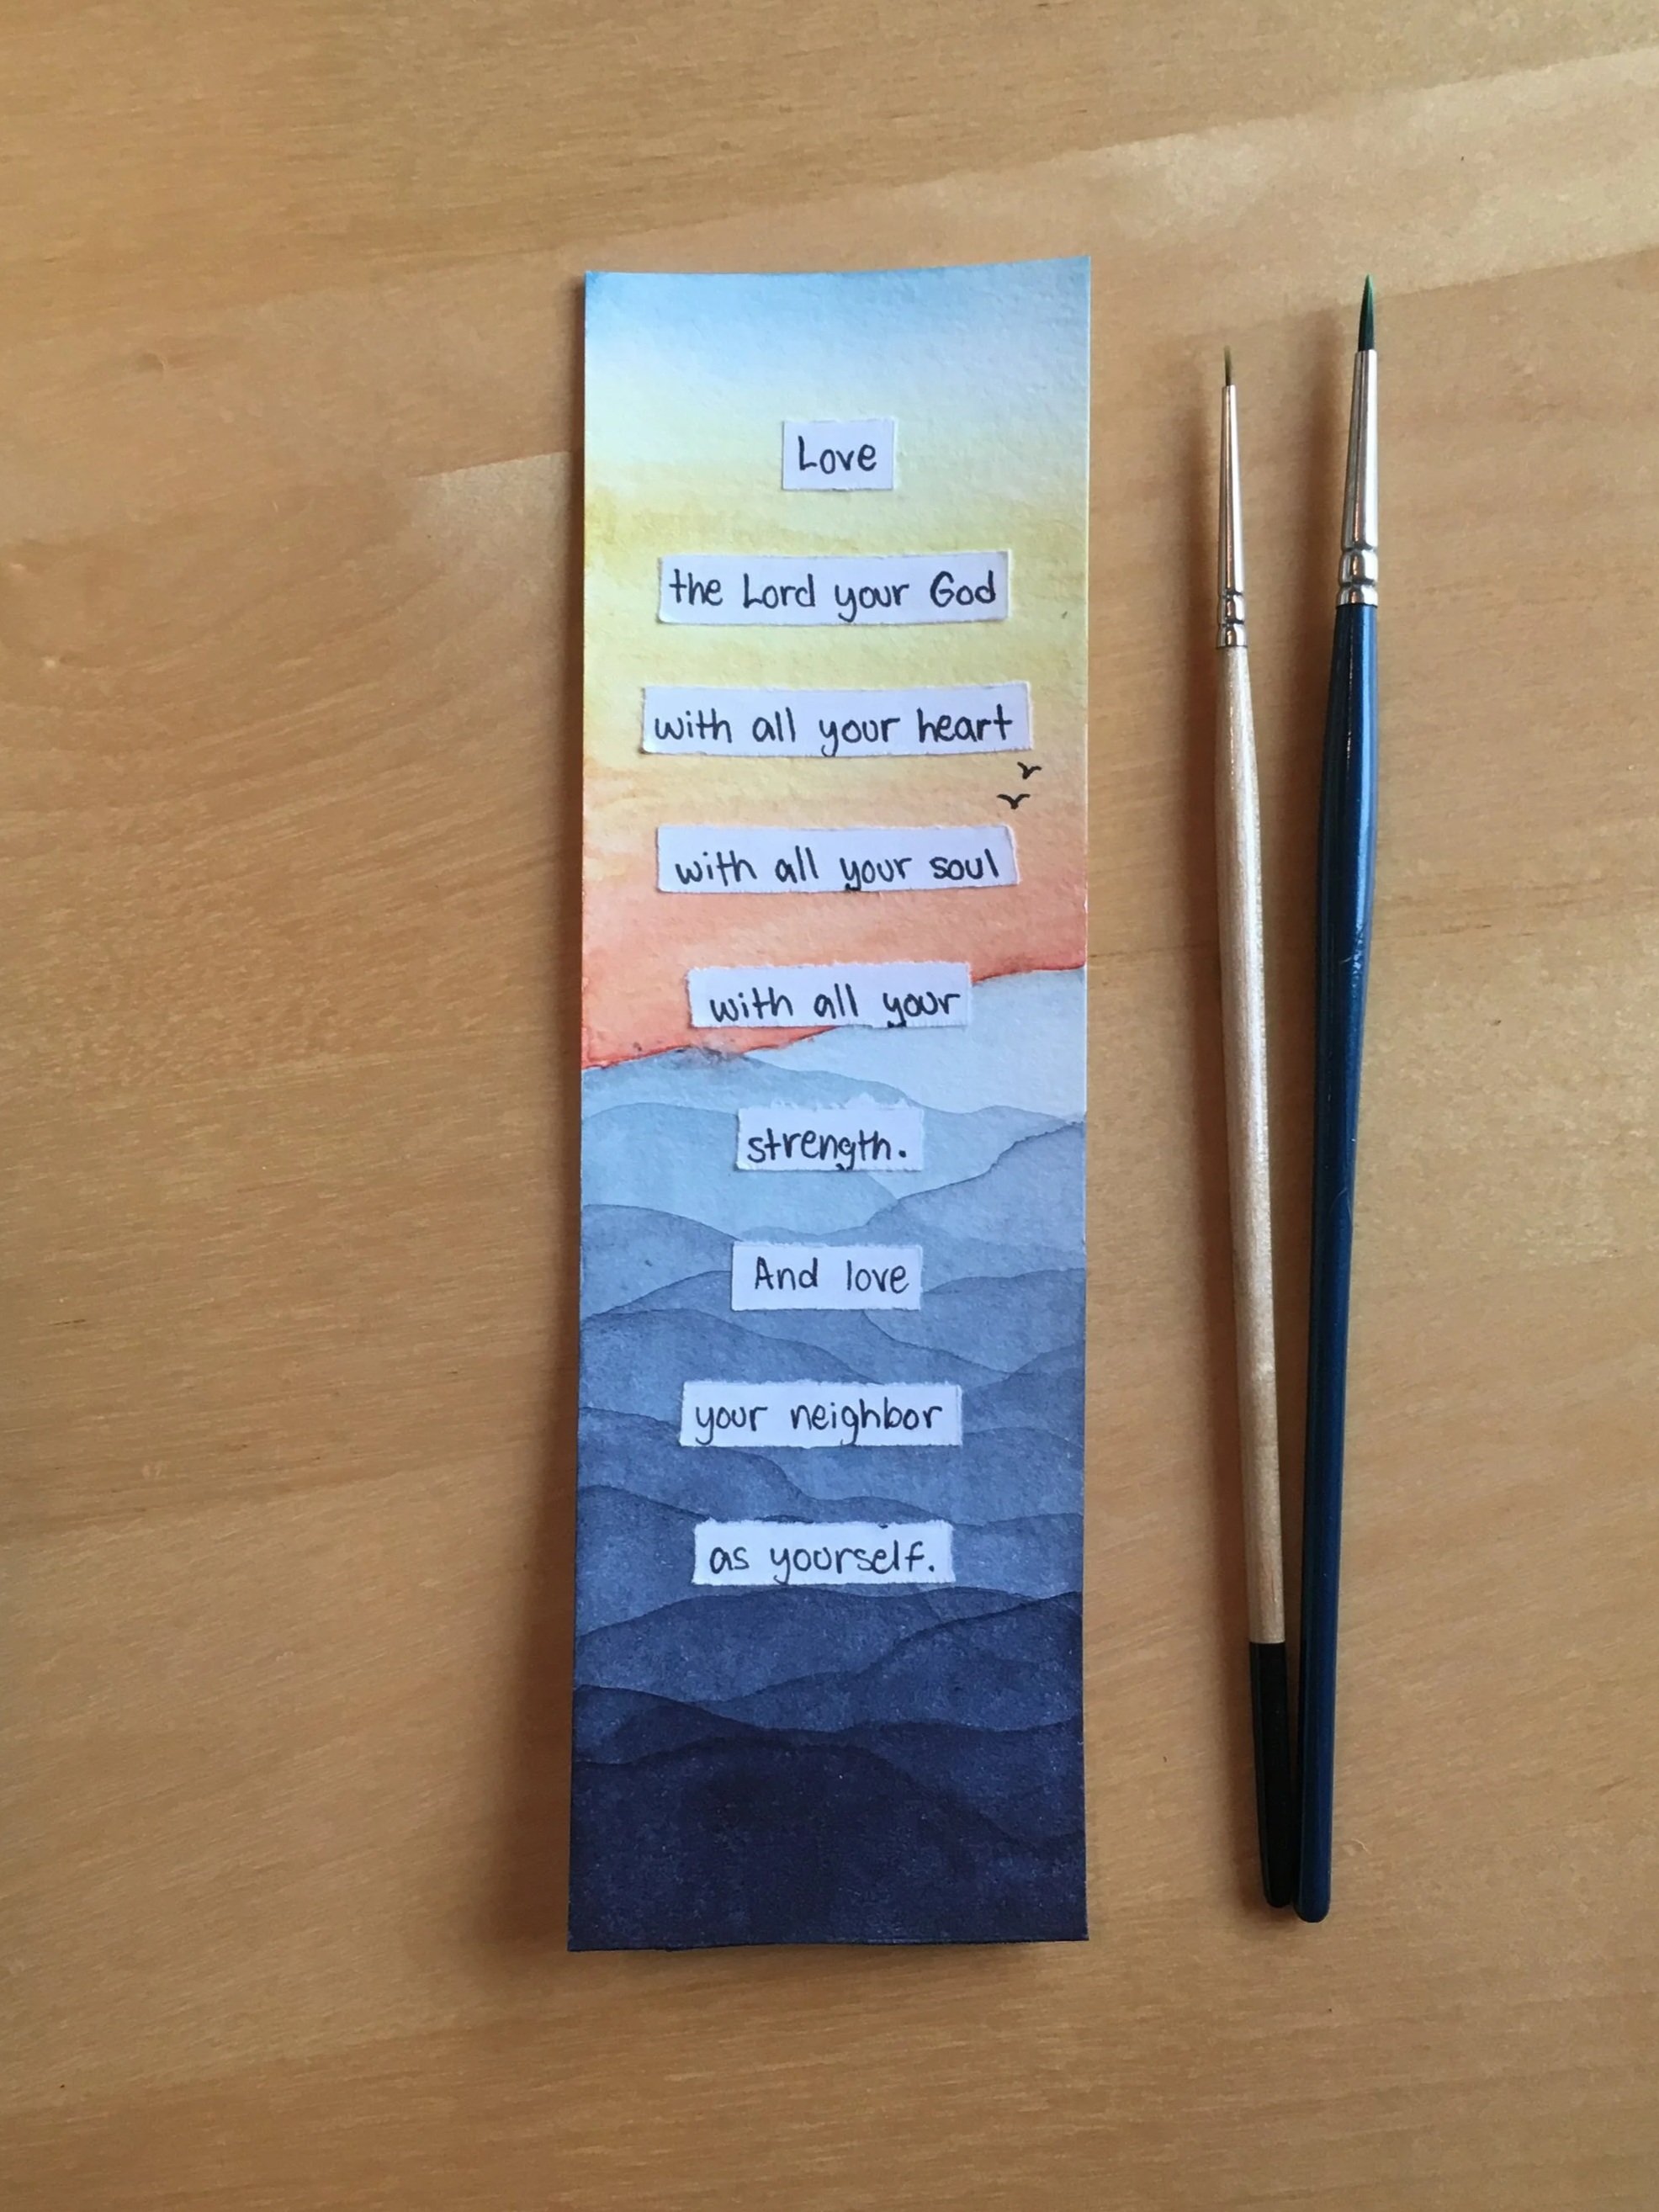 Love
the Lord your God
with all your heart
with all your soul
with all your
strength.
And love
your neighbor
as yourself.